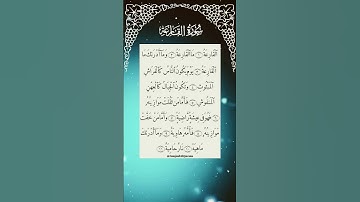 سُورَةُ القَارِعَة
ٱلْقَارِعَةُ ١ مَا ٱلْقَارِعَةُ ٢ وَمَآ أَدْرَىٰكَ مَا
ٱلْقَارِعَةُ ٣ يَوْمَ يَكُونُ ٱلنَّاسُ كَٱلْفَرَاشِ
ٱلْمَبْثُوثِ ٤ وَتَكُونُ ٱلْجِبَالُ كَٱلْعِهْنِ
ٱلْمَنفُوشِ ٥ فَأَمَّا مَن ثَقُلَتْ مَوَٰزِينُهُۥ
٦ فَهُوَ فِى عِيشَةٍ رَّاضِيَةٍ ٧ وَأَمَّا مَنْ خَفَّتْ
مَوَٰزِينُهُۥ ٨ فَأُمُّهُۥ هَاوِيَةٌ ٩ وَمَآ أَدْرَىٰكَ
مَا هِيَهْ ١٠ نَارٌ حَامِيَةٌۢ ١١